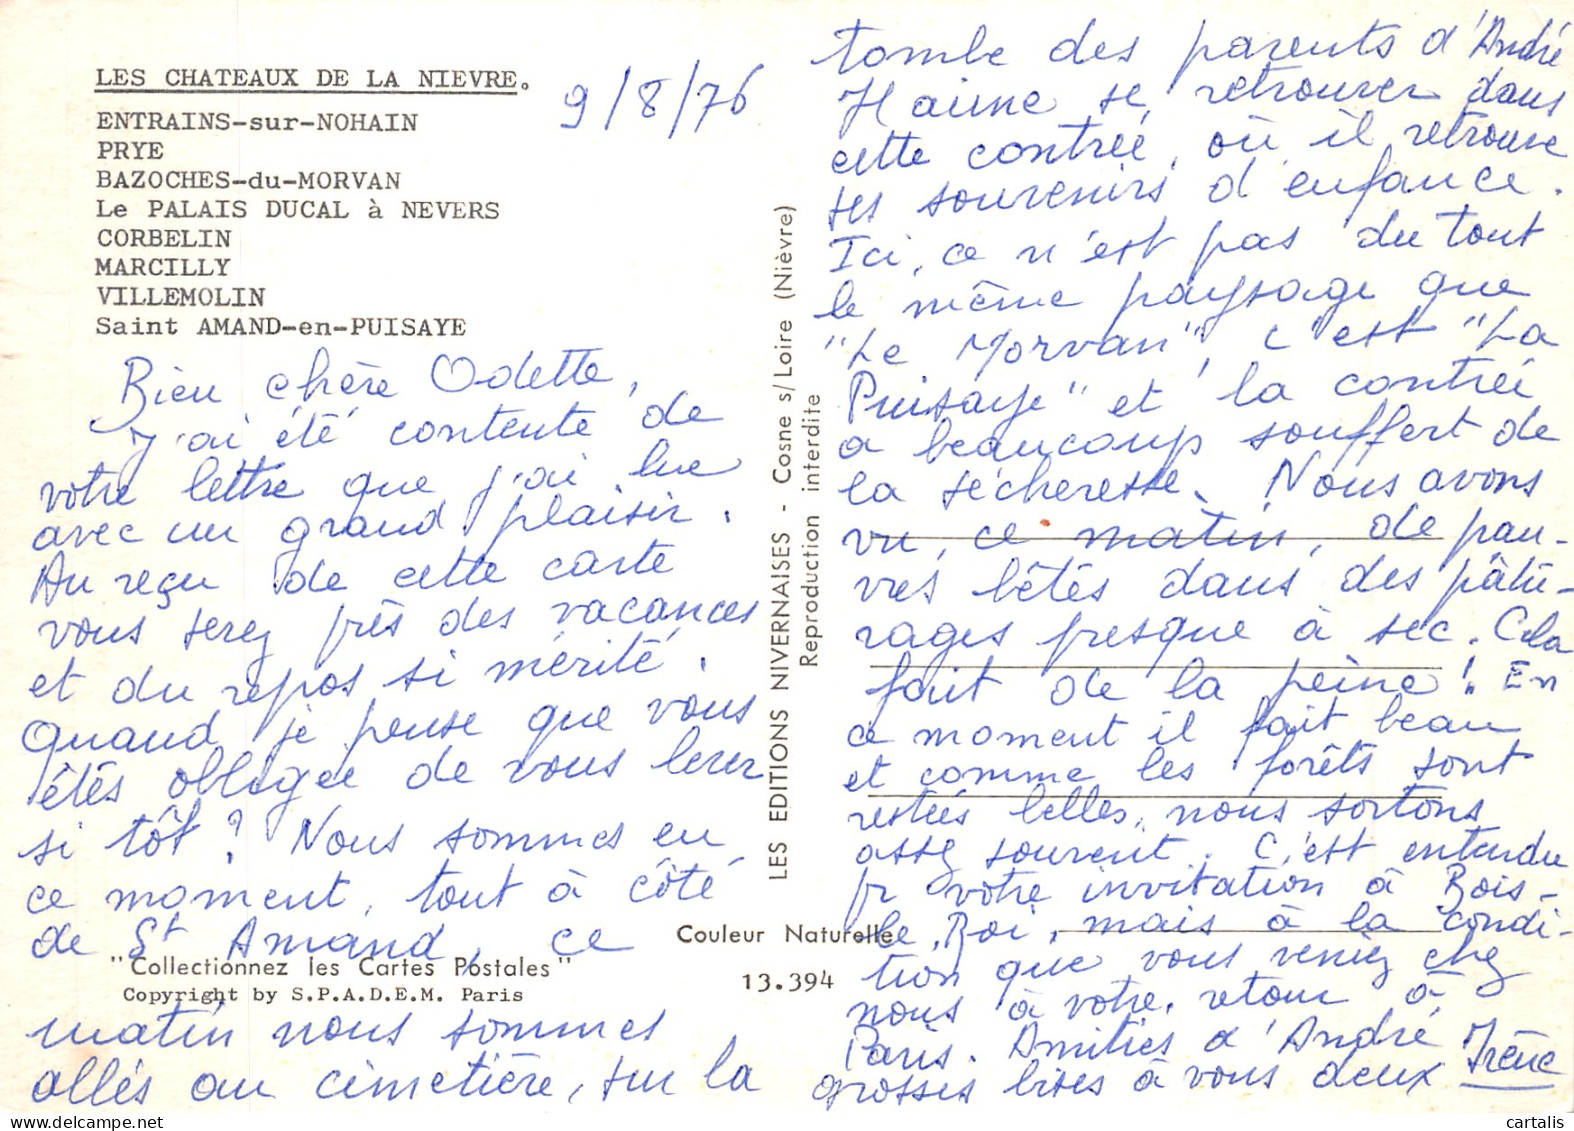 LES CHATEAUX DE LA NIEVRE.
ENTRAINS-sur-NOHAIN
PRYE
BAZOCHES-du-MORVAN
Le PALAIS DUCAL à NEVERS
CORBELIN
MARCILLY
VILLEMOLIN
Saint AMAND-en-PUISAYE
9/8/76
Bien chère Odette,
J'ai été contente de
votre lettre que j'ai lue
avec un grand plaisir.
Au reçu de cette carte
vous serez près des vacances
et du repos si mérité.
Quand je pense que vous
êtes obligée de vous lever
si tôt? Nous sommes en
ce moment, tout à côté
de St Amand, ce
"Collectionnez les Cartes Postales"
Copyright by S.P.A.D.E.M. Paris
matin nous sommes
allés au cimetière, sur la
Couleur Naturelle
13.394
LES EDITIONS NIVERNAISES - Cosne s/Loire (Nièvre)
Reproduction interdite
tombe des parents d'André
Haime se retrouver dans
cette contrée, où il retrouve
ses souvenirs d'enfance.
Ici, ce n'est pas du tout
le même paysage que
"Le Morvan", c'est "La
Puisaye" et la contrée
a beaucoup souffert de
la sécheresse. Nous avons
vu, ce matin, de pau-
vres bêtes dans des pâtu-
rages presque à sec. Cela
fait de la peine! En
ce moment il fait beau
et comme les forêts sont
restées belles, nous sortons
assez souvent. C'est entendu
pr votre invitation à Bois-
-le-Roi, mais à la condi-
tion que vous veniez chez
nous à votre retour à
Paris. Amitiés d'André
grosses bises à vous deux Irène
cartalis